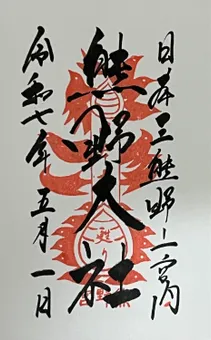 日本三熊野一宮内
熊野大社
令和七年五月一日
甦り